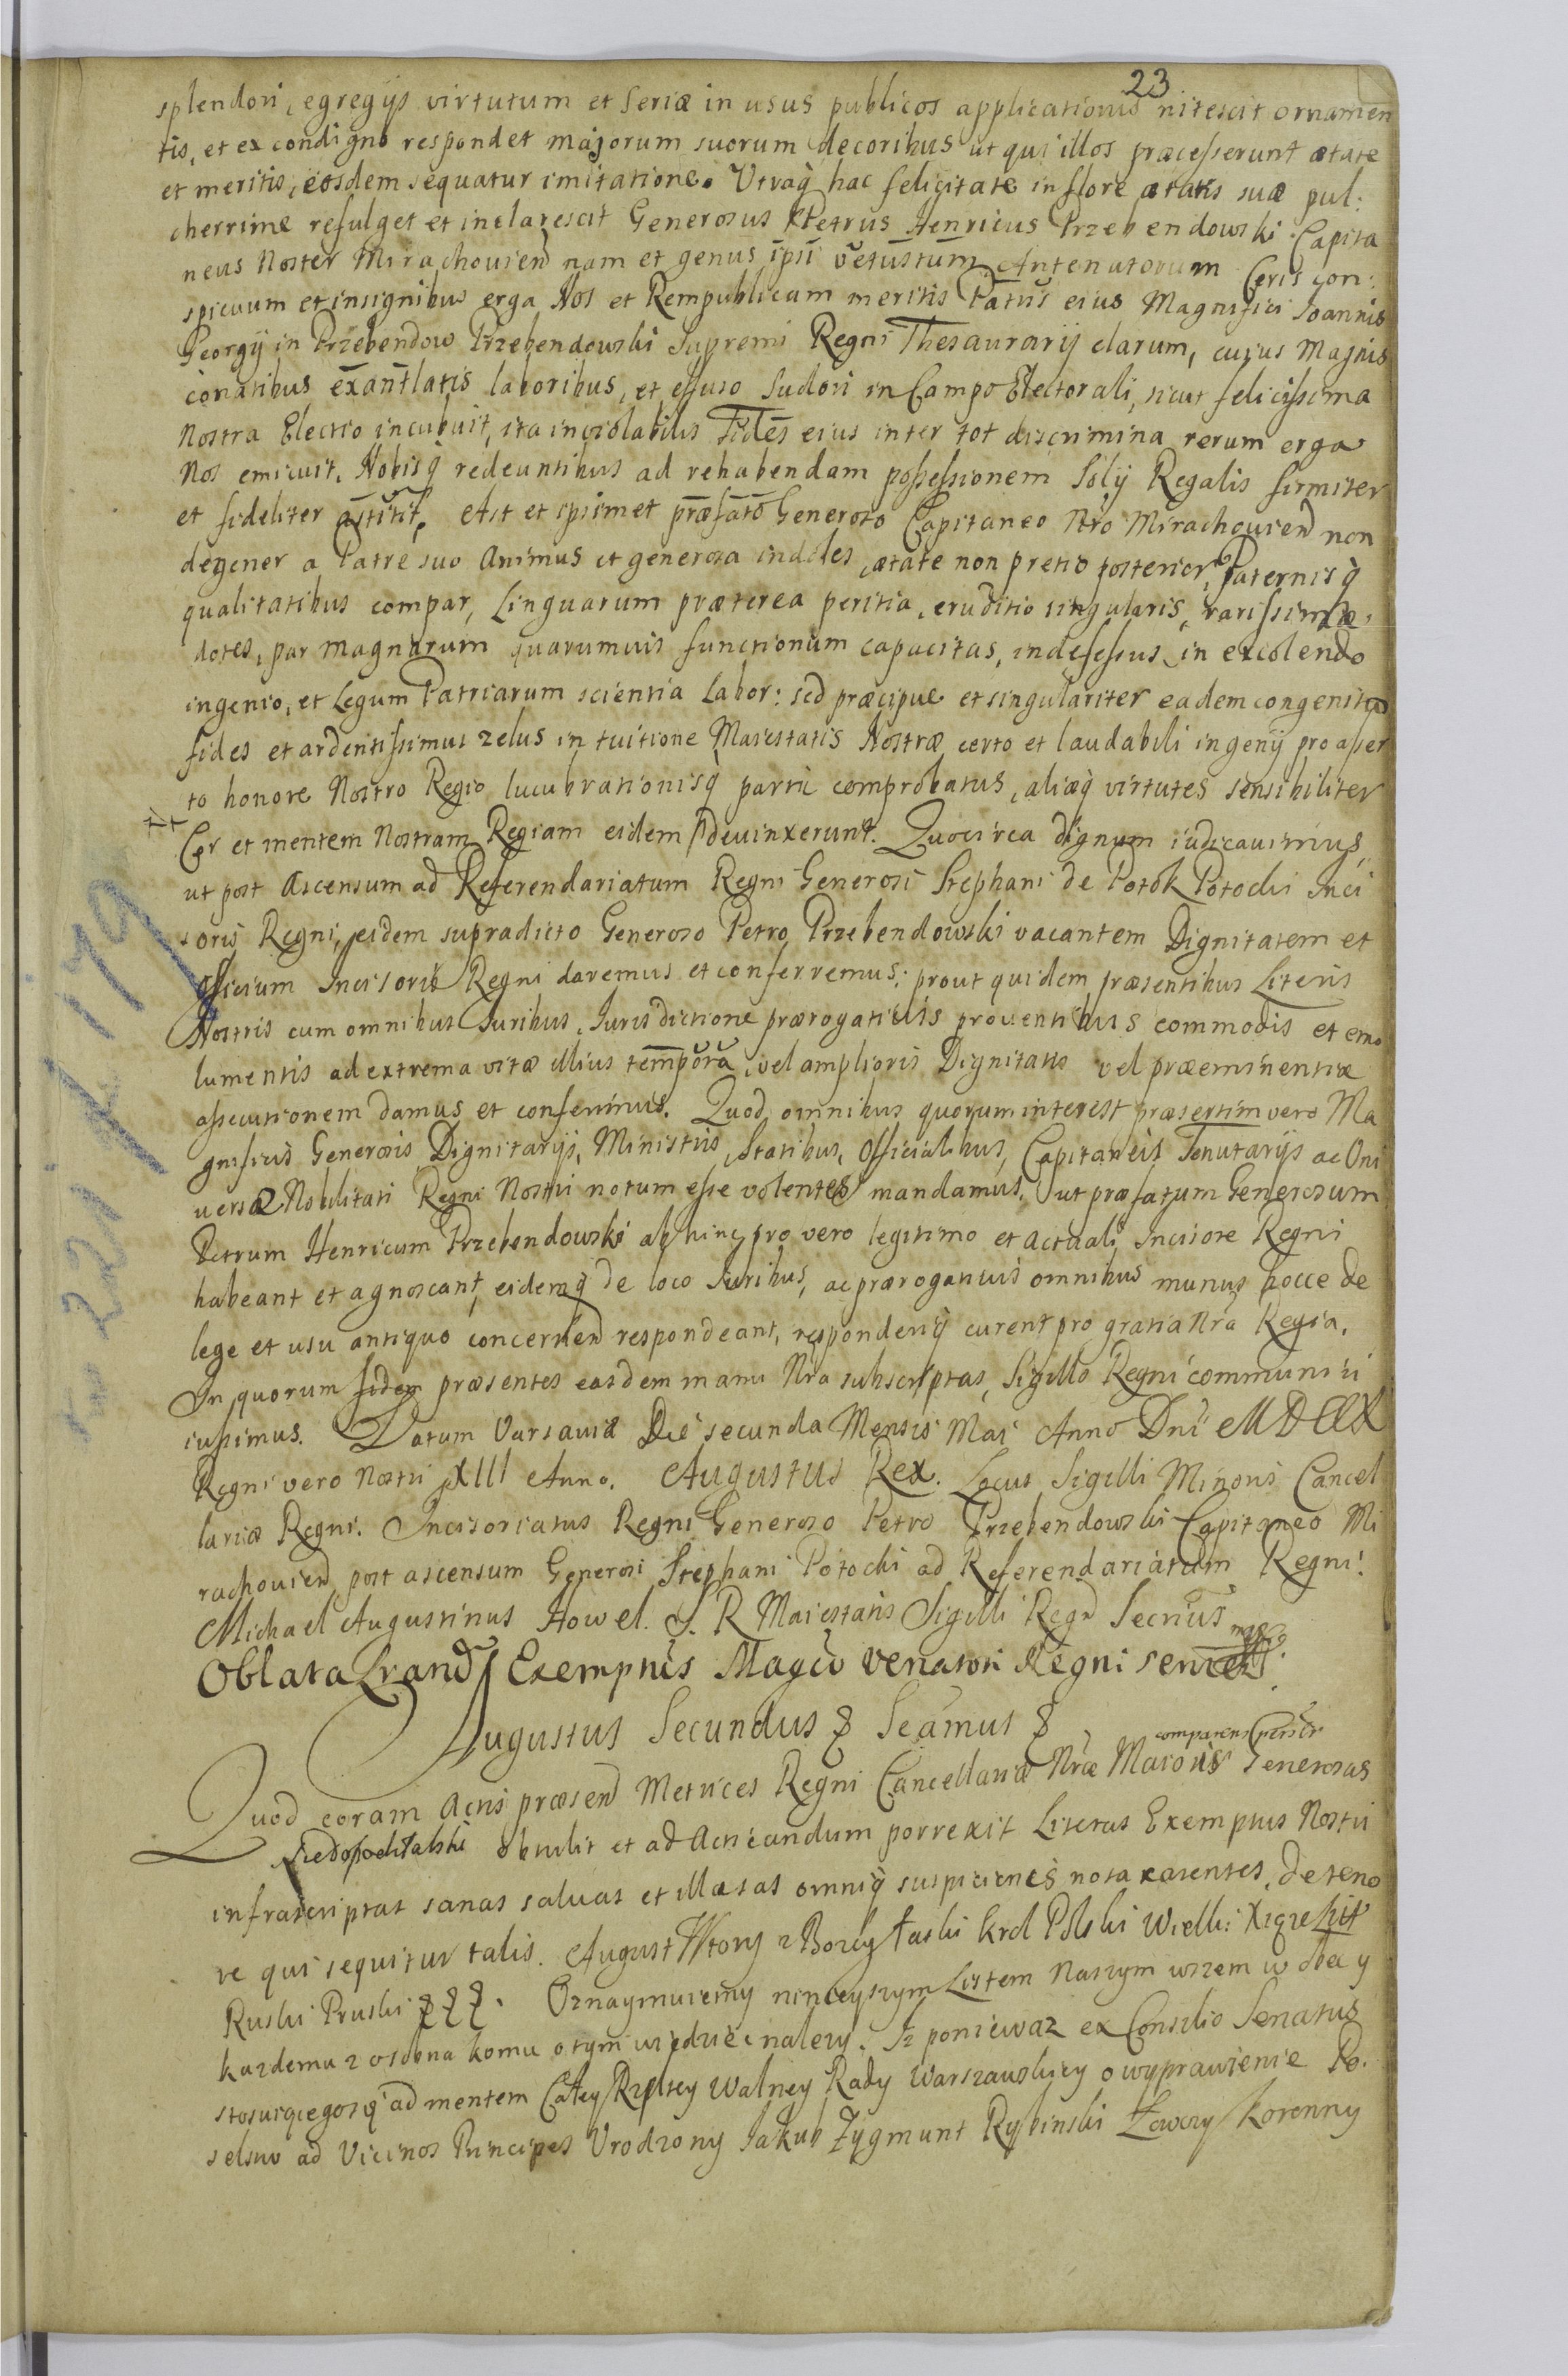 23
splendori, egregijs virtutum et seriæ in usus publicos applicationis nitescit ornamen
tis, et ex condigno respondet majorum suorum decoribus ut qui illos præcesserunt ætate
et meritis, eosdem sequatur imitatione. Utraq̃ hac felicitate in flore ætatis suæ pul:
cherrime refulget et inclarescit Generosus Petrus Henricus Przebendowski Capita
neus Noster Mirachovien̄ nam et genus ip̄si vetustum Antenatorum Ceris con:
spicuum et insignibus erga Nos et Rempublicam meritis Pat̄ris eius Magnifici Joannis
Georgij in Przebendow Przebendowski Supremi Regni Thesaurarij clarum, cujus Magnis
conatibus exantlatis laboribus, et effuso Sudori in Campo Electorali, sicut felicissima
Nostra Electio incubuit, ita inviolabilis Fides eius inter tot discrimina rerum erga
Nos emicuit. Nobisq̃ redeuntibus ad rehabendam possessionem Solij Regalis firmiter
et fideliter astitit. Ast et ipsimet præfato Generoso Capitaneo Nr̄o Mirachovien̄ non
degener a Patre suo Animus et generosa indoles, ætate non pretio posterior, Paternisq̃
qualitatibus compar, Linguarum præterea peritia, eruditio singularis, rarissimæ
dotes, par magnarum quarumvis functionum capacitas, indefessus in excolendo
ingenio, et Legum Patriarum scientia Labor: sed præcipue et singulariter eadem congenita
fides et ardentissimus zelus in tuitione Maiestatis Nostræ certo et laudabili ingenij pro asser
to honore Nostro Regio lucubrationisq̃ partu comprobatus, aliæq̃ virtutes sensibiliter
Cor et mentem Nostram Regiam eidem devinxerunt. Quocirca dignum iudicavimus,
ut post Ascensum ad Referendariatum Regni Generosi Stephani de Potok Potocki Inci
soris Regni, eidem supradicto Generoso Petro Przebendowski vacantem Dignitatem et
officium Incisoris Regni daremus et conferremus: prout quidem præsentibus Literis
Nostris cum omnibus Juribus, Jurisdictione prærogativis proventibus commodis et emo
lumentis ad extrema vitæ illius tempora, vel amplioris Dignitatis vel præeminentiæ
assecutionem damus et conferimus. Quod omnibus quorum interest præsertim vero Ma
gnificis Generosis Dignitarijs, Ministris, Statibus, Officialibus, Capitaneis Tenutarijs ac Uni
versæ Nobilitati Regni Nostri notum esse volentes mandamus, ut præfatum Generosum
Petrum Henricum Przebendowski abhinc pro vero legitimo et actuali Incisore Regni
habeant et agnoscant, eidemq̃ de loco Juribus, ac prærogativis omnibus munus hocce de
lege et usu antiquo concernen̄ respondeant, responderiq̃ curent pro gratia Nr̄a Regia.
In quorum fidem præsentes easdem manu Nr̄a subscriptas, Sigillo Regni communiri
iussimus. Datum Varsaviæ Die secunda Mensis Mai Anno Dni MDCCX
Regni vero Nostri XIII Anno. Augustus Rex. Locus Sigilli Minoris Cancel
lariæ Regni. Incisoriatus Regni Generoso Petro Przebendowski Capitaneo Mi
rachovien̄ post ascensum Generosi Stephani Potocki ad Referendariatum Regni.
Michael Augustinus Howel. S. R Maiestatis Sigilli Regn̄ Secrius mpp.
Oblata Lrarū Exemptus Magco Venatori Regni servien̄.
Augustus Secundus & Seamus &
comparens personlr
Quod coram Actis præsen̄ Metrices Regni Cancellariæ Nræ Maioris Generosas
obtulit et ad Acticandum porrexit Literas Exemptus Nostri
infrascriptas sanas salvas et illæsas omniq̃ suspicionis nota carentes, de teno
re qui sequitur talis. August Wtory z Bozey łaski Krol Polski Wielki Xiąze Lit
Ruski Pruski &&&. Oznaymuiemy ninieyszym Listem Naszym wszem w obec y
kazdemu z osobna komu o tym wiedziec nalezy. Iz poniewaz ex Consilio Senatus
stosuiącegosię ad mentem Całey Rzpltey Walney Rady Warszawskiey o wyprawienie Po.
selstw ad Vicinos Principes Urodzony Jakub Zygmunt Rybinski Łowczy Koronny